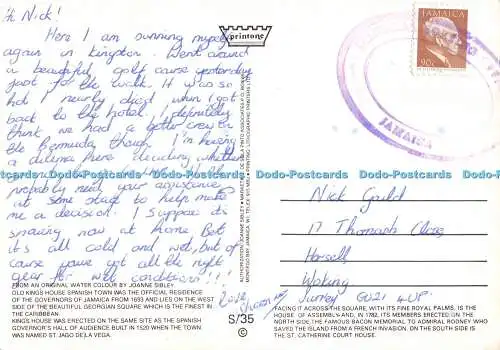 Hi Nick!
Here I am sunning myself
again in Kingston. Went around
a beautiful golf cause yesterday
just for the walk. It was so
hot I nearly died when I got
back to the hotel. I definitely
think we had a better crew to
the Bermuda though. I'm having
a dilema here deciding whether
probably need your assistance
at some stage to help make
me a decision. I suppose its
snowing now at home. Bet
it's all cold and wet, but of
cause you've got all the right
gear for wet conditions!!!
Love
printone
JAMAICA
90c
JAMAICA
Dodo-Postcards Dodo-Postcards Dodo-Postcards Dodo-Postcards Dodo-Postcards
Nick Gould
17 Thomash Close,
Horsell
Woking
Surrey GU21 4UP.
FROM AN ORIGINAL WATER COLOUR BY JOANNE SIBLEY.
OLD KINGS HOUSE SPANISH TOWN WAS THE OFFICIAL RESIDENCE
OF THE GOVERNORS OF JAMAICA FROM 1693 AND LIES ON THE WEST
SIDE OF THE BEAUTIFUL GEORGIAN SQUARE WHICH IS THE FINEST IN
THE CARIBBEAN.
KING'S HOUSE WAS ERECTED ON THE SAME SITE AS THE SPANISH
GOVERNOR'S HALL OF AUDIENCE BUILT IN 1520 WHEN THE TOWN
WAS NAMED ST. JAGO DE LA VEGA.
S/35
©
FACING IT ACROSS THE SQUARE WITH ITS FINE ROYAL PALMS, IS THE
HOUSE OF ASSEMBLY AND, IN 1782, ITS MEMBERS ERECTED ON THE
NORTH SIDE THE FAMOUS BACON MEMORIAL, TO ADMIRAL RODNEY WHO
SAVED THE ISLAND FROM A FRENCH INVASION. ON THE SOUTH SIDE IS
THE ST. CATHERINE COURT HOUSE.